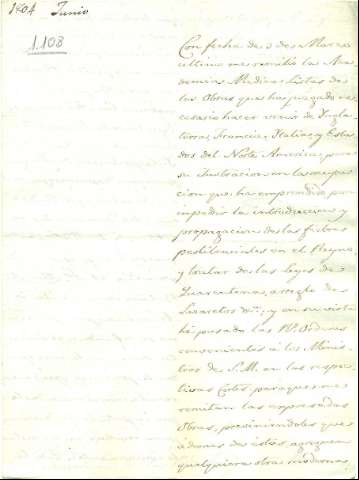 1804 Junio
1108
Con fecha de 3 de Marzo
ultimo me remitió la Aca-
demia Medica Listas de
las Obras que ha juzgado ne-
cesario hacer venir de Ingla-
terra, Francia, Italia, y Esta-
dos del Norte America, para
su ilustracion en la
cion que ha emprendido para
impedir la introduccion y
propagacion de las fiebres
pestilenciales en el Reyno,
y tratar de las Leyes de
Quarentenas, arreglo de
Lazaretos &c.; y en su vista
hé pasado las Rs. Ordenes
convenientes á los Minis-
tros de S.M. en las respec-
tivas Cortes, para que me
remitan las expresadas
Obras, previniendoles que
á demas de éstas agreguen
qualquiera otras modernas